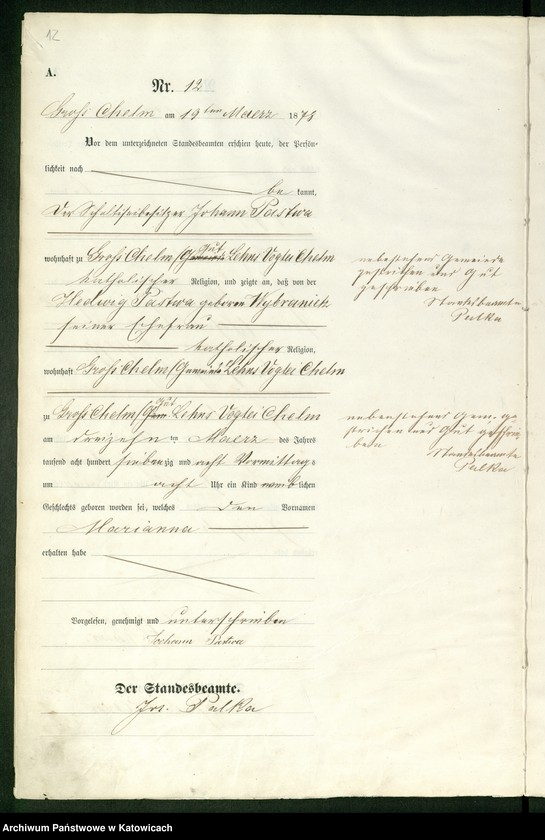 12
A.
Nr. 12
Groß Chelm am 19 ten Maerz 1878
Vor dem unterzeichneten Standesbeamten erschien heute, der Persön-
lichkeit nach
be kannt,
Der Scholtiseibesitzer Johann Pastwa
wohnhaft zu Groß Chelm/Gemeinde Gut Lehns Vogtei Chelm
katholischer Religion, und zeigte an, daß von der
Hedwig Pastwa geboren Wybraniek
seiner Ehefrau
katholischer Religion,
wohnhaft Groß Chelm/Gemeinde Lehns Vogtei Chelm
zu Groß Chelm/Gem. Gut Lehns Vogtei Chelm
am dreizehn ten Maerz des Jahres
tausend acht hundert siebenzig und acht Vormittags
um acht Uhr ein Kind weiblichen
Geschlechts geboren worden sei, welches den Vornamen
Marianna
erhalten habe
Vorgelesen, genehmigt und unterschrieben
Johann Pastwa
Der Standesbeamte.
Jos. Palka
nebenstehend Gemeinde
gestrichen und Gut
geschrieben
Standesbeamte
Palka
nebenstehend Gem. ge
strichen und Gut geschrie
ben
Standesbeamte
Palka
Archiwum Państwowe w Katowicach